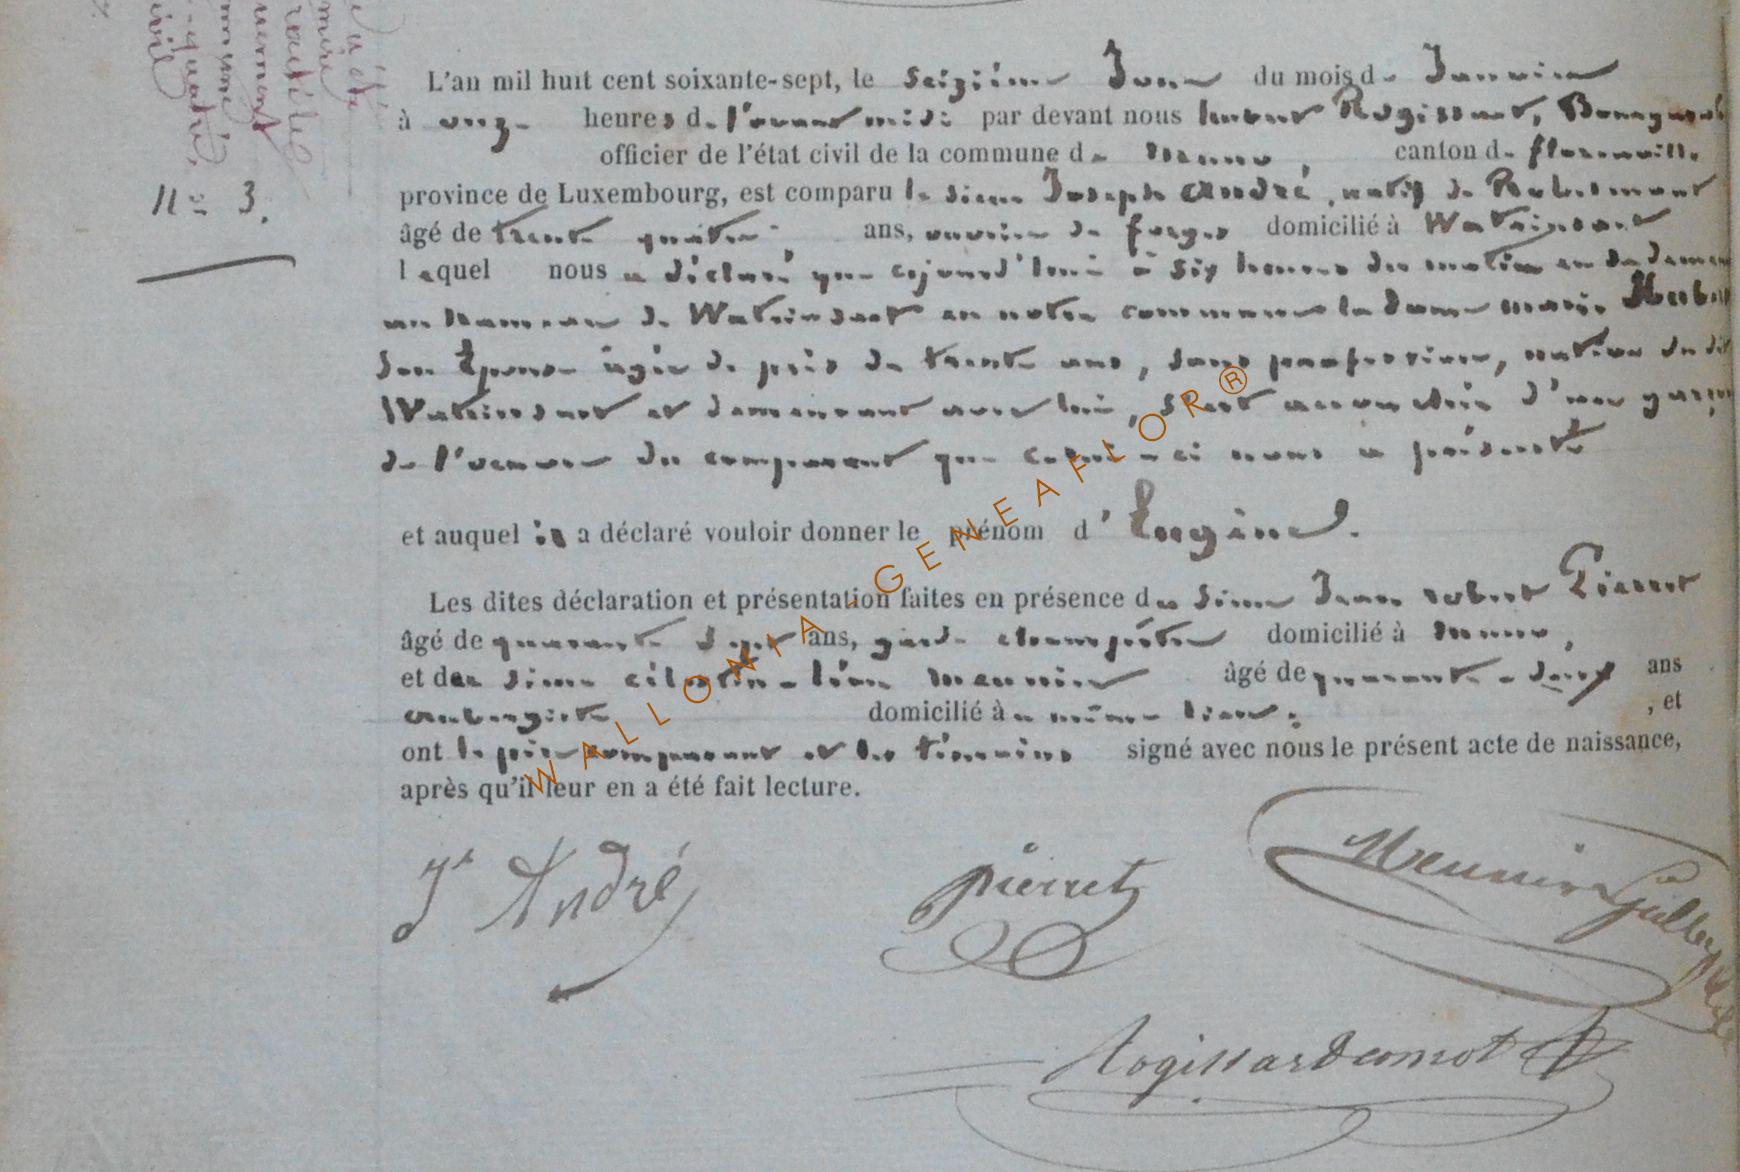 N° 3.
L'an mil huit cent soixante-sept, le seizième Jour du mois de Janvier
à onze heures de l'avant midi: par devant nous hubert Rogissart, Bourgmest
officier de l'état civil de la commune de muno, canton de florenville
province de Luxembourg, est comparu le sieur Joseph André, natif de
âgé de trente quatre ans, ouvrier de forges domicilié à Watrinsart
lequel nous a déclaré que cejourd'hui à six heures du matin en sa demeure
au hameau de Watrinsart en notre commune la dame marie
Son Epouse âgée de près de trente ans, sans profession, native du dit
Watrinsart et demeurant avec lui, s'est accouchée d'un garçon
de l'oeuvre du comparant que celui-ci nous a présenté
et auquel il a déclaré vouloir donner le prénom d'Eugène.
Les dites déclaration et présentation faites en présence du sieur Jean robert Pierret
âgé de quarante sept ans, garde champêtre domicilié à muno,
et du sieur célestin-léon meunier âgé de quarante-deux ans
aubergiste domicilié à même lieu; , et
ont le père comparant et les témoins signé avec nous le présent acte de naissance,
après qu'il leur en a été fait lecture.
Jh André
pierret
Meunier
WALLONIA-GENEAFLOR®